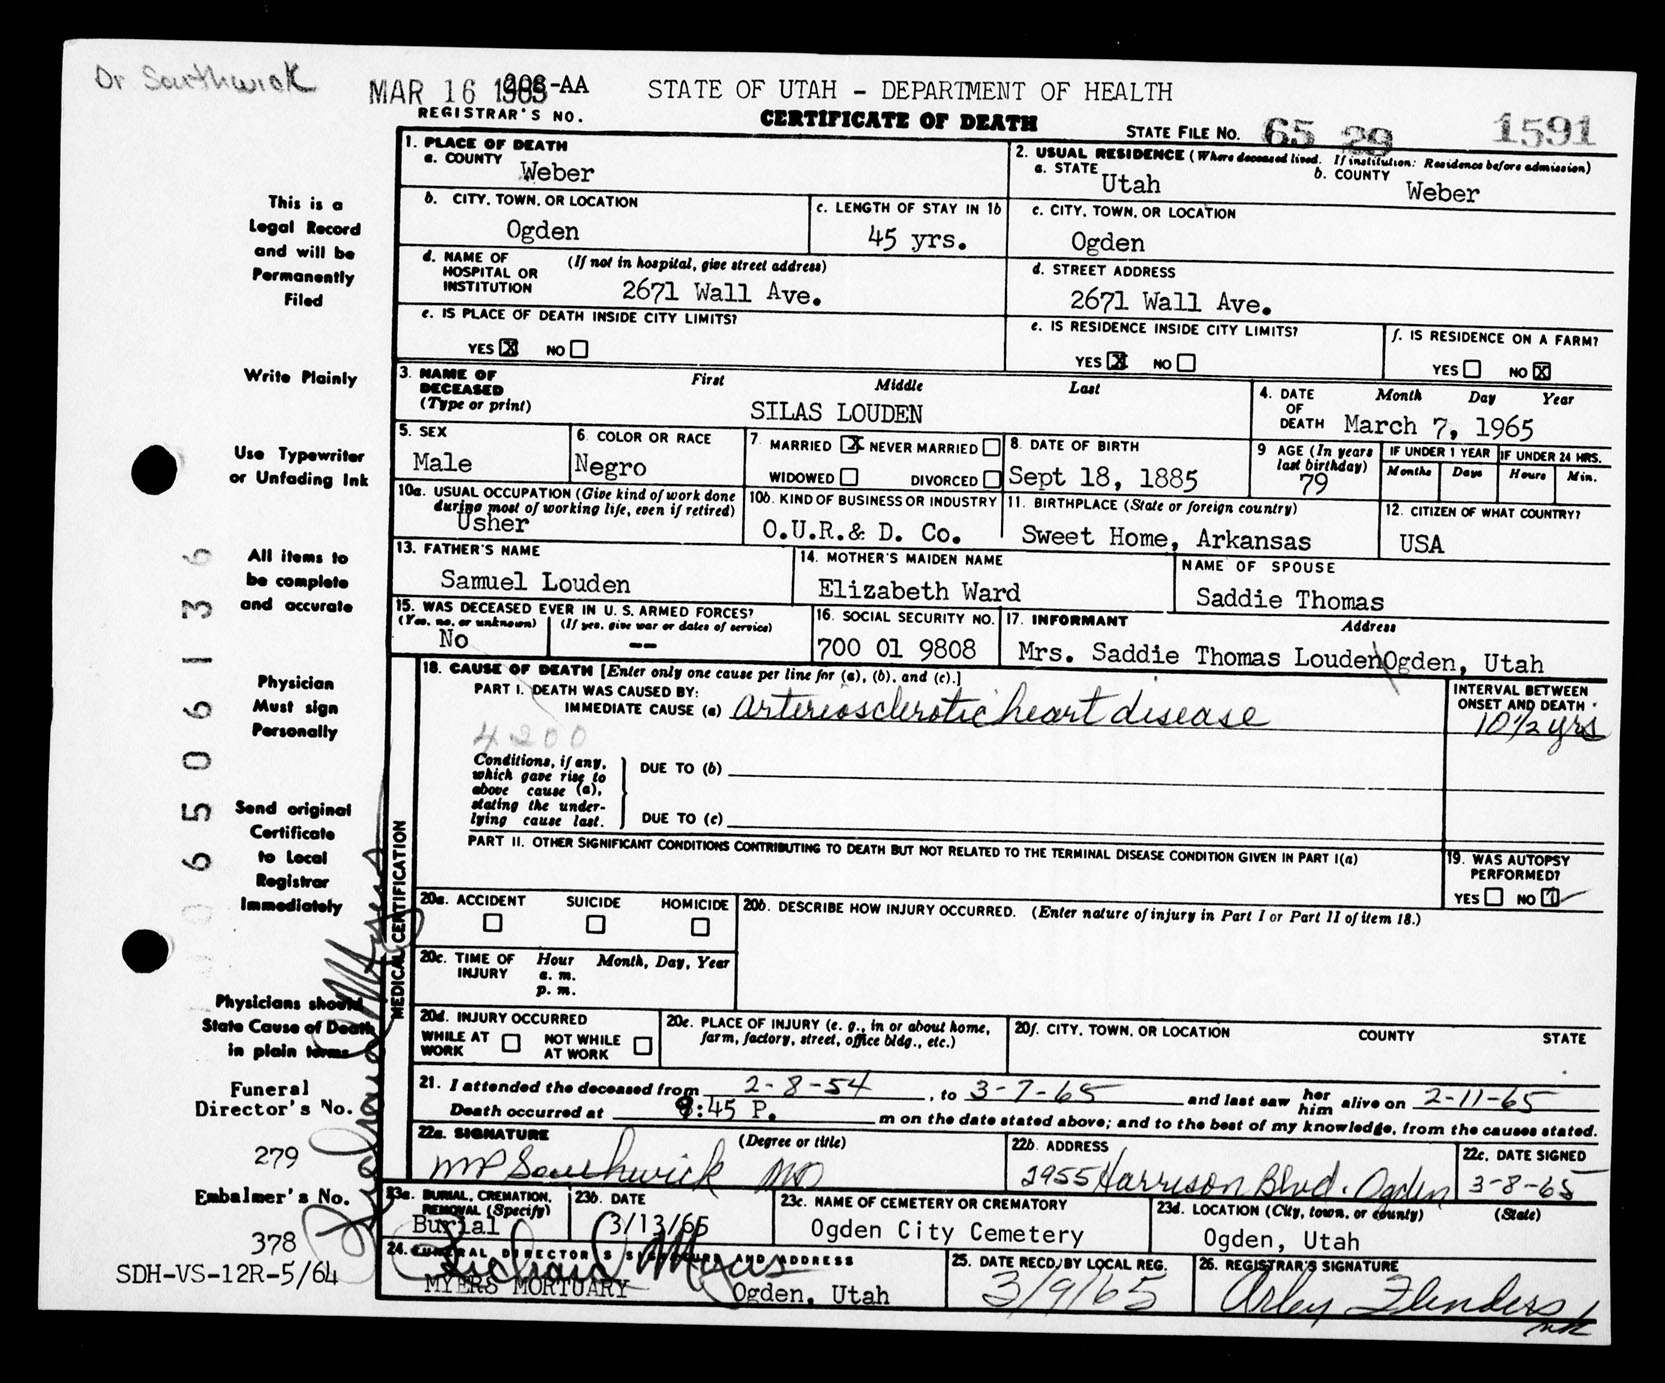 Dr Southwick
MAR 16 1965 208-AA STATE OF UTAH - DEPARTMENT OF HEALTH
REGISTRAR'S NO. CERTIFICATE OF DEATH STATE FILE NO. 65 29 1591
This is a
Legal Record
and will be
Permanently
Filed
Write Plainly
Use Typewriter
or Unfading Ink
All items to
be complete
and accurate
Physician
Must sign
Personally
Send original
Certificate
to Local
Registrar
Immediately
Physicians should
State Cause of Death
in plain terms
Funeral
Director's No.
279
Embalmer's No.
378
SDH-VS-12R-5/64
065 06136
1. PLACE OF DEATH
a. COUNTY Weber
2. USUAL RESIDENCE (Where deceased lived. If institution: Residence before admission)
a. STATE Utah b. COUNTY Weber
b. CITY, TOWN, OR LOCATION Ogden
c. LENGTH OF STAY IN 1b 45 yrs.
c. CITY, TOWN, OR LOCATION Ogden
d. NAME OF HOSPITAL OR INSTITUTION (If not in hospital, give street address) 2671 Wall Ave.
d. STREET ADDRESS 2671 Wall Ave.
e. IS PLACE OF DEATH INSIDE CITY LIMITS?
YES X NO
e. IS RESIDENCE INSIDE CITY LIMITS?
YES X NO
f. IS RESIDENCE ON A FARM?
YES NO X
3. NAME OF DECEASED (Type or print) First Middle Last
SILAS LOUDEN
4. DATE OF DEATH Month Day Year
March 7, 1965
5. SEX Male
6. COLOR OR RACE Negro
7. MARRIED X NEVER MARRIED
WIDOWED DIVORCED
8. DATE OF BIRTH Sept 18, 1885
9 AGE (In years last birthday) 79
IF UNDER 1 YEAR Months Days
IF UNDER 24 HRS. Hours Min.
10a. USUAL OCCUPATION (Give kind of work done during most of working life, even if retired) Usher
10b. KIND OF BUSINESS OR INDUSTRY O.U.R.& D. Co.
11. BIRTHPLACE (State or foreign country) Sweet Home, Arkansas
12. CITIZEN OF WHAT COUNTRY? USA
13. FATHER'S NAME Samuel Louden
14. MOTHER'S MAIDEN NAME Elizabeth Ward
NAME OF SPOUSE Saddie Thomas
15. WAS DECEASED EVER IN U. S. ARMED FORCES?
(Yes, no, or unknown) No (If yes, give war or dates of service) --
16. SOCIAL SECURITY NO. 700 01 9808
17. INFORMANT Address
Mrs. Saddie Thomas Louden Ogden, Utah
MEDICAL CERTIFICATION
18. CAUSE OF DEATH [Enter only one cause per line for (a), (b), and (c).]
PART I. DEATH WAS CAUSED BY:
IMMEDIATE CAUSE (a) arteriosclerotic heart disease
INTERVAL BETWEEN ONSET AND DEATH
10 1/2 yrs
4200
Conditions, if any, which gave rise to above cause (a), stating the underlying cause last.
DUE TO (b)
DUE TO (c)
PART II. OTHER SIGNIFICANT CONDITIONS CONTRIBUTING TO DEATH BUT NOT RELATED TO THE TERMINAL DISEASE CONDITION GIVEN IN PART I(a)
19. WAS AUTOPSY PERFORMED?
YES NO
20a. ACCIDENT SUICIDE HOMICIDE
20b. DESCRIBE HOW INJURY OCCURRED. (Enter nature of injury in Part I or Part II of item 18.)
20c. TIME OF INJURY Hour a. m. p. m. Month, Day, Year
20d. INJURY OCCURRED
WHILE AT WORK NOT WHILE AT WORK
20e. PLACE OF INJURY (e. g., in or about home, farm, factory, street, office bldg., etc.)
20f. CITY, TOWN, OR LOCATION COUNTY STATE
21. I attended the deceased from 2-8-54, to 3-7-65 and last saw her him alive on 2-11-65
Death occurred at 9:45 P. m on the date stated above; and to the best of my knowledge, from the causes stated.
22a. SIGNATURE (Degree or title)
MP Southwick MD
22b. ADDRESS
2955 Harrison Blvd. Ogden
22c. DATE SIGNED
3-8-65
23a. BURIAL, CREMATION, REMOVAL (Specify) Burial
23b. DATE 3/13/65
23c. NAME OF CEMETERY OR CREMATORY
Ogden City Cemetery
23d. LOCATION (City, town, or county) (State)
Ogden, Utah
24. FUNERAL DIRECTOR'S SIGNATURE AND ADDRESS
Richard Myers
MYERS MORTUARY Ogden, Utah
25. DATE RECD. BY LOCAL REG.
3/9/65
26. REGISTRAR'S SIGNATURE
Arley Flinders